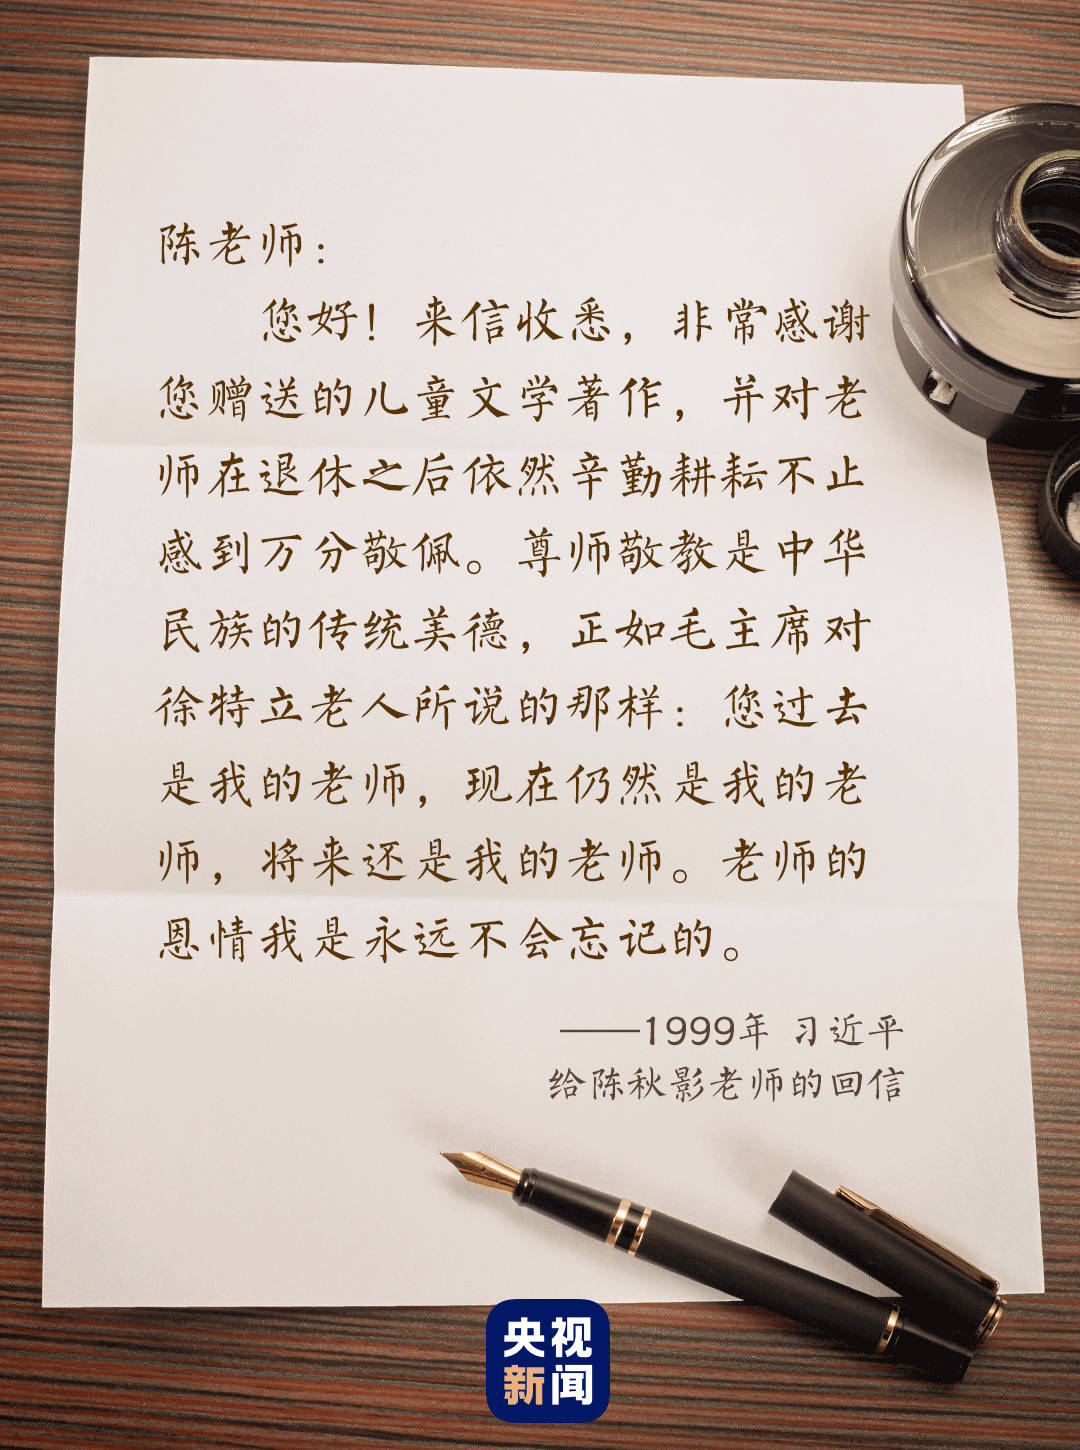 陈老师：
您好！来信收悉，非常感谢
您赠送的儿童文学著作，并对老
师在退休之后依然辛勤耕耘不止
感到万分敬佩。尊师敬教是中华
民族的传统美德，正如毛主席对
徐特立老人所说的那样：您过去
是我的老师，现在仍然是我的老
师，将来还是我的老师。老师的
恩情我是永远不会忘记的。
——1999年 习近平
给陈秋影老师的回信
央视
新闻